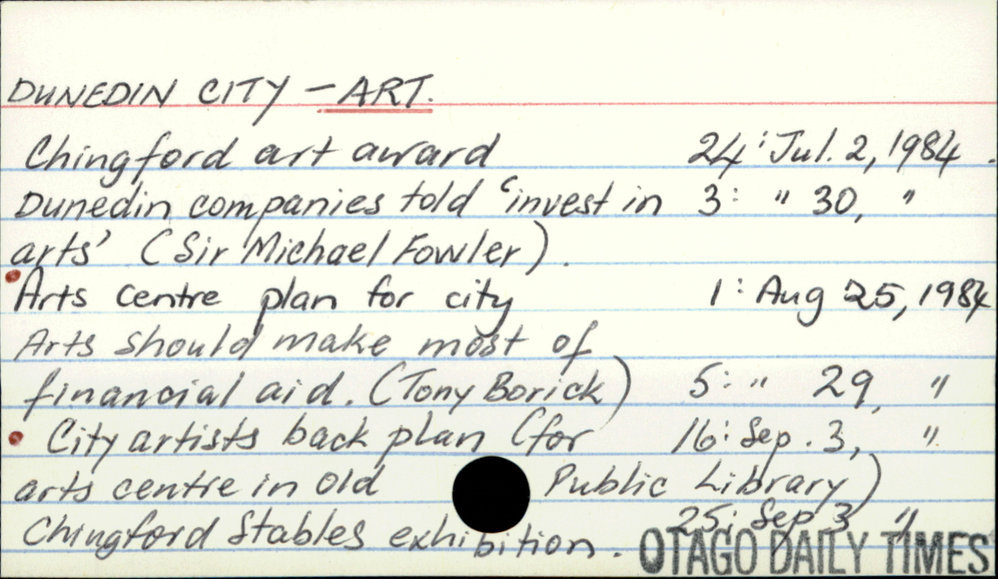 DUNEDIN CITY - ART.
Chingford art award 24: Jul. 2, 1984.
Dunedin companies told 'invest in 3: " 30, "
arts' (Sir Michael Fowler).
• Arts centre plan for city 1: Aug 25, 1984
Arts should make most of
financial aid. (Tony Borick) 5: " 29, "
• City artists back plan (for 16: Sep. 3, "
arts centre in Old Public Library)
Chingford Stables exhibition. 25: Sep 3 "
OTAGO DAILY TIMES